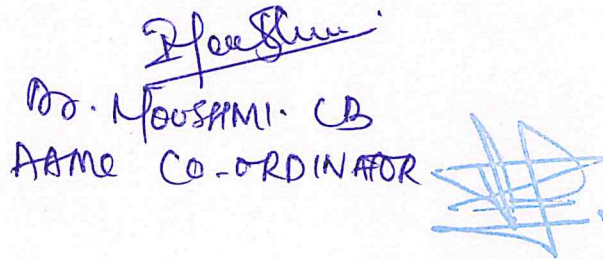 Dr. MOUSHMI. CB
AAMC CO-ORDINATOR